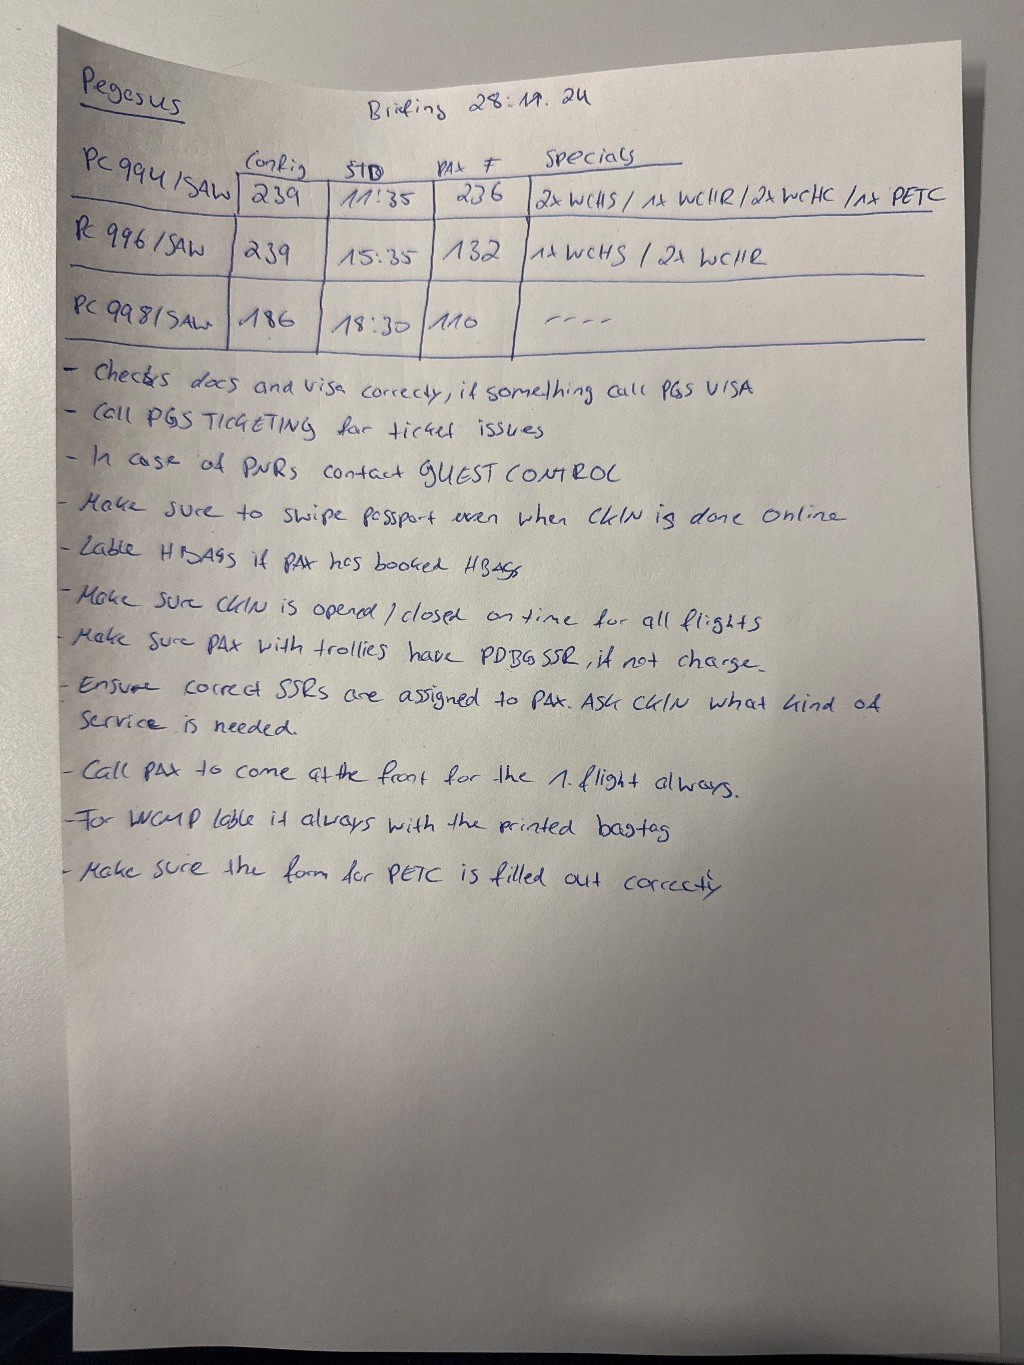 Pegasus
Briefing 28.11.24
Config STD PAX F Specials
PC 994/SAW 239 11:35 236 2x WCHS / 1x WCHR / 2x WCHC / 1x PETC
PC 996/SAW 239 15:35 132 1x WCHS / 2x WCHR
PC 998/SAW 186 18:30 110 ----
- Checks docs and visa correcty, if something call PGS VISA
- Call PGS TICKETING for ticket issues
- In case of PNRs contact GUEST CONTROL
- Make sure to swipe passport even when CKIN is done online
- Lable HBAGS if PAX has booked HBAGs
- Make sure CKIN is opened / closed on time for all flights
- Make sure PAX with trollies have PDBG SSR, if not charge.
- Ensure correct SSRs are assigned to PAX. Ask CKIN what kind of
service is needed.
- Call PAX to come at the front for the 1. flight always.
- For WCMP lable it always with the printed bagtag
- Make sure the form for PETC is filled out correctly